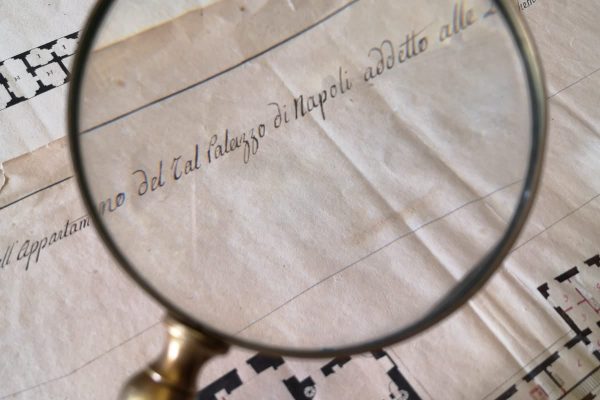 ell' Appartam no del Real Palazzo di Napoli addetto alle